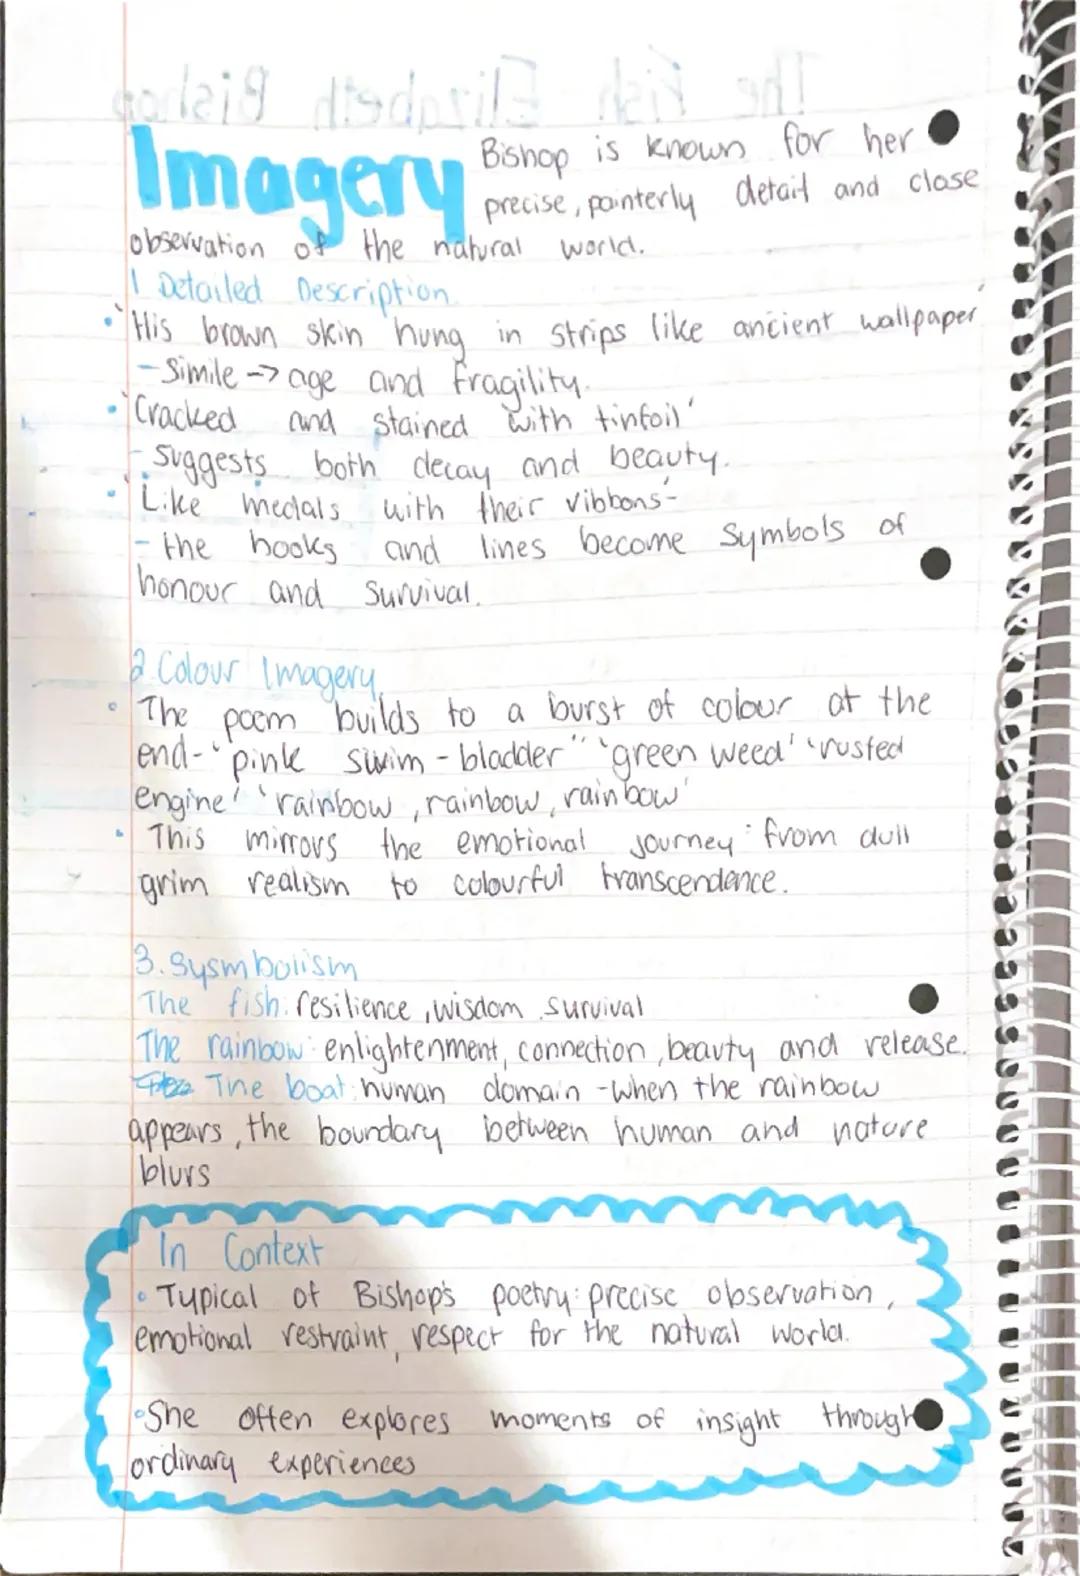 The Fish Elizabeth Bishop
Imagery Bishop is known for her
precise, painterly detail and close
observation of the natural world.
1 Detailed Description
• 'His brown skin hung in strips like ancient wallpaper'
- Simile -> age and fragility.
• 'Cracked and stained with tinfoil'
- Suggests both decay and beauty.
• 'Like medals with their ribbons' -
- the hooks and lines become symbols of
honour and survival.
2. Colour Imagery
• The poem builds to a burst of colour at the
end - 'pink swim - bladder" 'green weed' 'rusted
engine' 'rainbow, rainbow, rainbow'
• This mirrors the emotional journey: from dull
grim realism to colourful transcendence.
3. Sysmbolism
The fish: resilience, wisdom survival
The rainbow: enlightenment, connection, beauty and release.
The boat: human domain - when the rainbow
appears, the boundary between human and nature
blurs
In Context
• Typical of Bishop's poetry: precise observation,
emotional restraint, respect for the natural world.
• She often explores moments of insight through
ordinary experiences